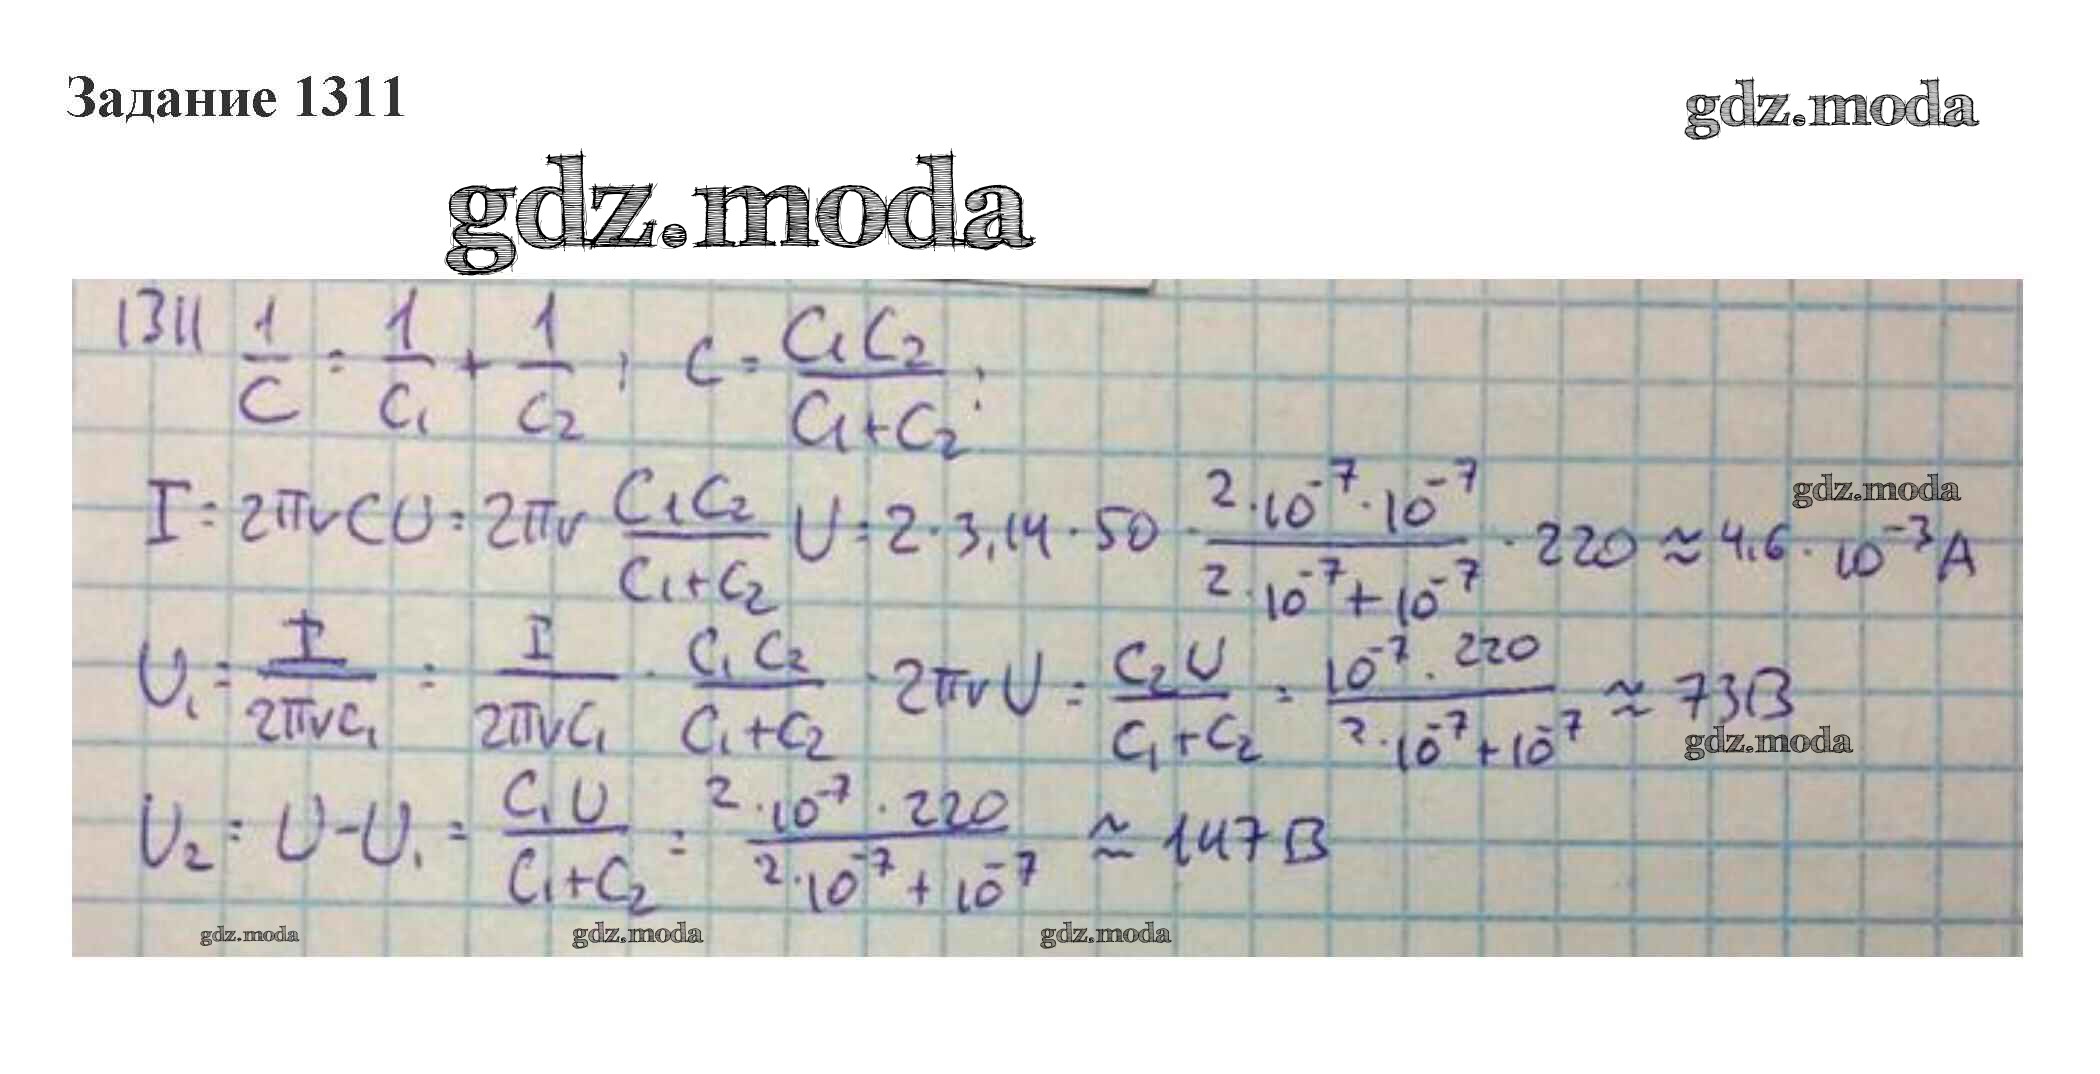 Задание 1311
gdz.moda
gdz.moda
1311 1/C = 1/C₁ + 1/C₂ ; C = C₁C₂/(C₁+C₂) ;
I = 2πνCU = 2πν C₁C₂/(C₁+C₂) U = 2·3,14·50 · (2·10⁻⁷·10⁻⁷)/(2·10⁻⁷+10⁻⁷) · 220 ≈ 4,6·10⁻³A
gdz.moda
U₁ = I/(2πνC₁) = I/(2πνC₁) · C₁C₂/(C₁+C₂) · 2πνU = C₂U/(C₁+C₂) = (10⁻⁷·220)/(2·10⁻⁷+10⁻⁷) ≈ 73В
gdz.moda
U₂ = U-U₁ = C₁U/(C₁+C₂) = (2·10⁻⁷·220)/(2·10⁻⁷+10⁻⁷) ≈ 147В
gdz.moda gdz.moda gdz.moda